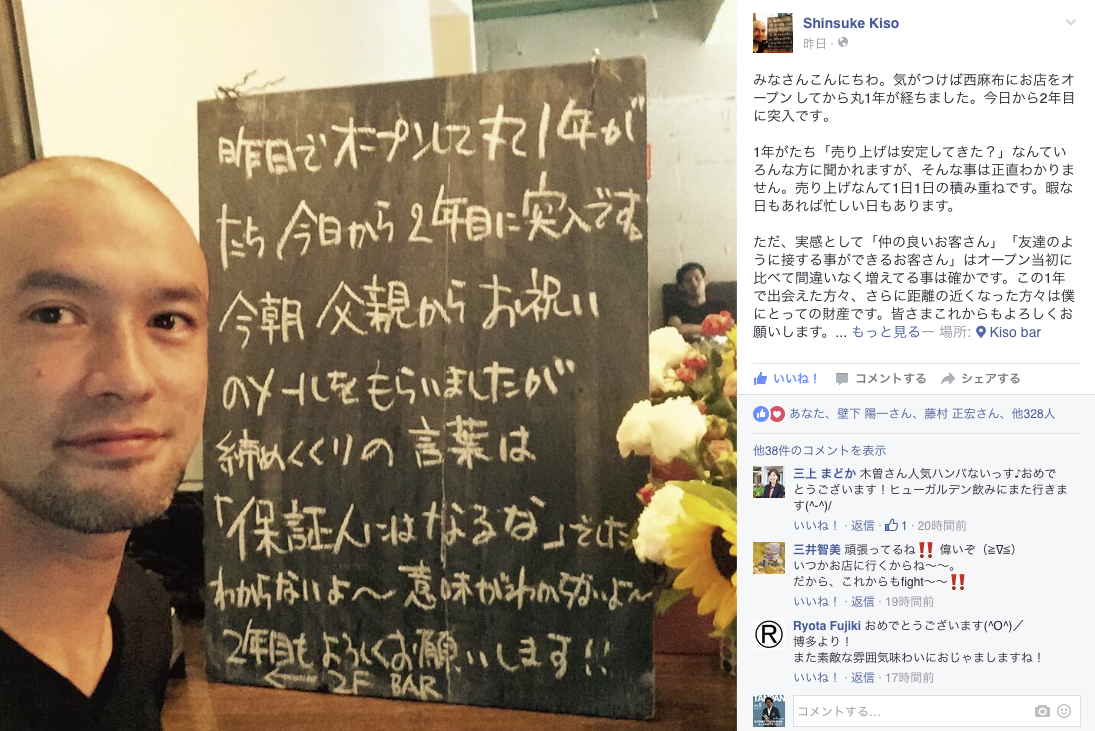 昨日でオープンして丸1年が
たち今日から2年目に突入です。
今朝 父親からお祝い
のメールをもらいましたが
締めくくりの言葉は
「保証人にはなるな」でした
わからないよ〜意味がわからないよ〜
2年目もよろしくお願いします!!
← 2F BAR
Shinsuke Kiso
昨日 ·
みなさんこんにちわ。気がつけば西麻布にお店をオ
ープンしてから丸1年が経ちました。今日から2年目
に突入です。
1年がたち「売り上げは安定してきた？」なんてい
ろんな方に聞かれますが、そんな事は正直わかりま
せん。売り上げなんて1日1日の積み重ねです。暇な
日もあれば忙しい日もあります。
ただ、実感として「仲の良いお客さん」「友達のよ
うに接する事ができるお客さん」はオープン当初に
比べて間違いなく増えてる事は確かです。この1年
で出会えた方々、さらに距離の近くなった方々は僕
にとっての財産です。皆さまこれからもよろしくお
願いします。... もっと見る — 場所: Kiso bar
いいね！ コメントする シェアする
あなた、壁下 陽一さん、藤村 正宏さん、他328人
他38件のコメントを表示
三上 まどか 木曽さん人気ハンパないっす♪おめで
とうございます！ヒューガルデン飲みにまた行きま
す(^-^)/
いいね！ · 返信 · 1 · 20時間前
三井智美 頑張ってるね‼️ 偉いぞ（≧∇≦）
いつかお店に行くからね〜〜。
だから、これからもfight〜〜‼️
いいね！ · 返信 · 19時間前
Ryota Fujiki おめでとうございます(^O^)／
博多より！
また素敵な雰囲気味わいにおじゃましますね！
いいね！ · 返信 · 17時間前
コメントする...
®